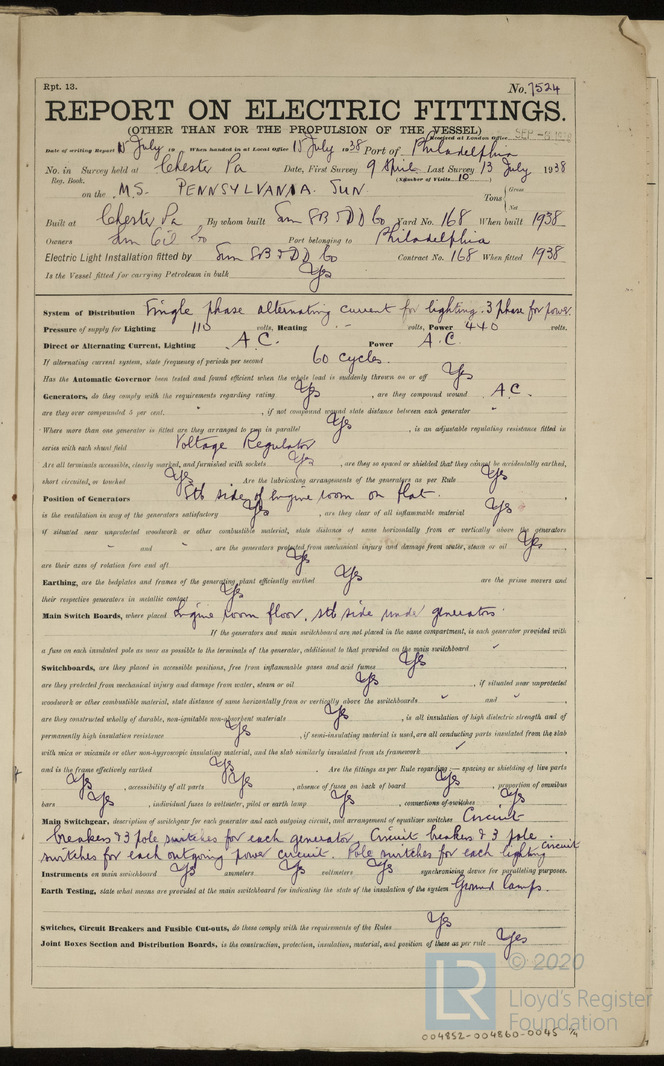 Rpt. 13.
No. 7524
REPORT ON ELECTRIC FITTINGS.
(OTHER THAN FOR THE PROPULSION OF THE VESSEL)
Received at London Office SEP -8 1938
Date of writing Report 15 July 19 When handed in at Local Office 15 July 1938 Port of Philadelphia
No. in Survey held at Chester Pa Date, First Survey 9 April Last Survey 13 July 1938
Reg. Book. (Number of Visits 10)
on the M.S. PENNSYLVANIA SUN Tons Gross Net
Built at Chester Pa By whom built Sun SB & DD Co Yard No. 168 When built 1938
Owners Sun Oil Co Port belonging to Philadelphia
Electric Light Installation fitted by Sun SB & DD Co Contract No. 168 When fitted 1938
Is the Vessel fitted for carrying Petroleum in bulk Yes
System of Distribution Single phase alternating current for lighting. 3 phase for power.
Pressure of supply for Lighting 110 volts, Heating - volts, Power 440 volts.
Direct or Alternating Current, Lighting A.C. Power A.C.
If alternating current system, state frequency of periods per second 60 cycles.
Has the Automatic Governor been tested and found efficient when the whole load is suddenly thrown on or off Yes
Generators, do they comply with the requirements regarding rating Yes, are they compound wound A.C.
are they over compounded 5 per cent. ", if not compound wound state distance between each generator "
Where more than one generator is fitted are they arranged to run in parallel Yes, is an adjustable regulating resistance fitted in
series with each shunt field Voltage Regulator
Are all terminals accessible, clearly marked, and furnished with sockets Yes, are they so spaced or shielded that they cannot be accidentally earthed,
short circuited, or touched Yes Are the lubricating arrangements of the generators as per Rule Yes
Position of Generators Stb side of Engine room on flat.
is the ventilation in way of the generators satisfactory Yes, are they clear of all inflammable material Yes
if situated near unprotected woodwork or other combustible material, state distance of same horizontally from or vertically above the generators
" and ", are the generators protected from mechanical injury and damage from water, steam or oil Yes
are their axes of rotation fore and aft Yes
Earthing, are the bedplates and frames of the generating plant efficiently earthed Yes are the prime movers and
their respective generators in metallic contact Yes
Main Switch Boards, where placed Engine room floor, stb side under generators.
If the generators and main switchboard are not placed in the same compartment, is each generator provided with
a fuse on each insulated pole as near as possible to the terminals of the generator, additional to that provided on the main switchboard "
Switchboards, are they placed in accessible positions, free from inflammable gases and acid fumes Yes
are they protected from mechanical injury and damage from water, steam or oil Yes, if situated near unprotected
woodwork or other combustible material, state distance of same horizontally from or vertically above the switchboards " and "
are they constructed wholly of durable, non-ignitable non-absorbent materials Yes, is all insulation of high dielectric strength and of
permanently high insulation resistance Yes, if semi-insulating material is used, are all conducting parts insulated from the slab
with mica or micanite or other non-hygroscopic insulating material, and the slab similarly insulated from its framework ✓
and is the frame effectively earthed Yes. Are the fittings as per Rule regarding:— spacing or shielding of live parts
Yes, accessibility of all parts Yes, absence of fuses on back of board Yes, proportion of omnibus
bars Yes, individual fuses to voltmeter, pilot or earth lamp Yes, connections of switches Yes
Main Switchgear, description of switchgear for each generator and each outgoing circuit, and arrangement of equaliser switches Circuit
breakers & 3 pole switches for each generator. Circuit breakers & 3 pole
switches for each outgoing power circuit. Pole switches for each lighting circuit
Instruments on main switchboard Yes ammeters Yes voltmeters Yes synchronising device for paralleling purposes.
Earth Testing, state what means are provided at the main switchboard for indicating the state of the insulation of the system Ground lamps.
Switches, Circuit Breakers and Fusible Cut-outs, do these comply with the requirements of the Rules Yes
Joint Boxes Section and Distribution Boards, is the construction, protection, insulation, material, and position of these as per rule Yes
© 2020
LR
Lloyd's Register
Foundation
004852-004860-0045 1/4